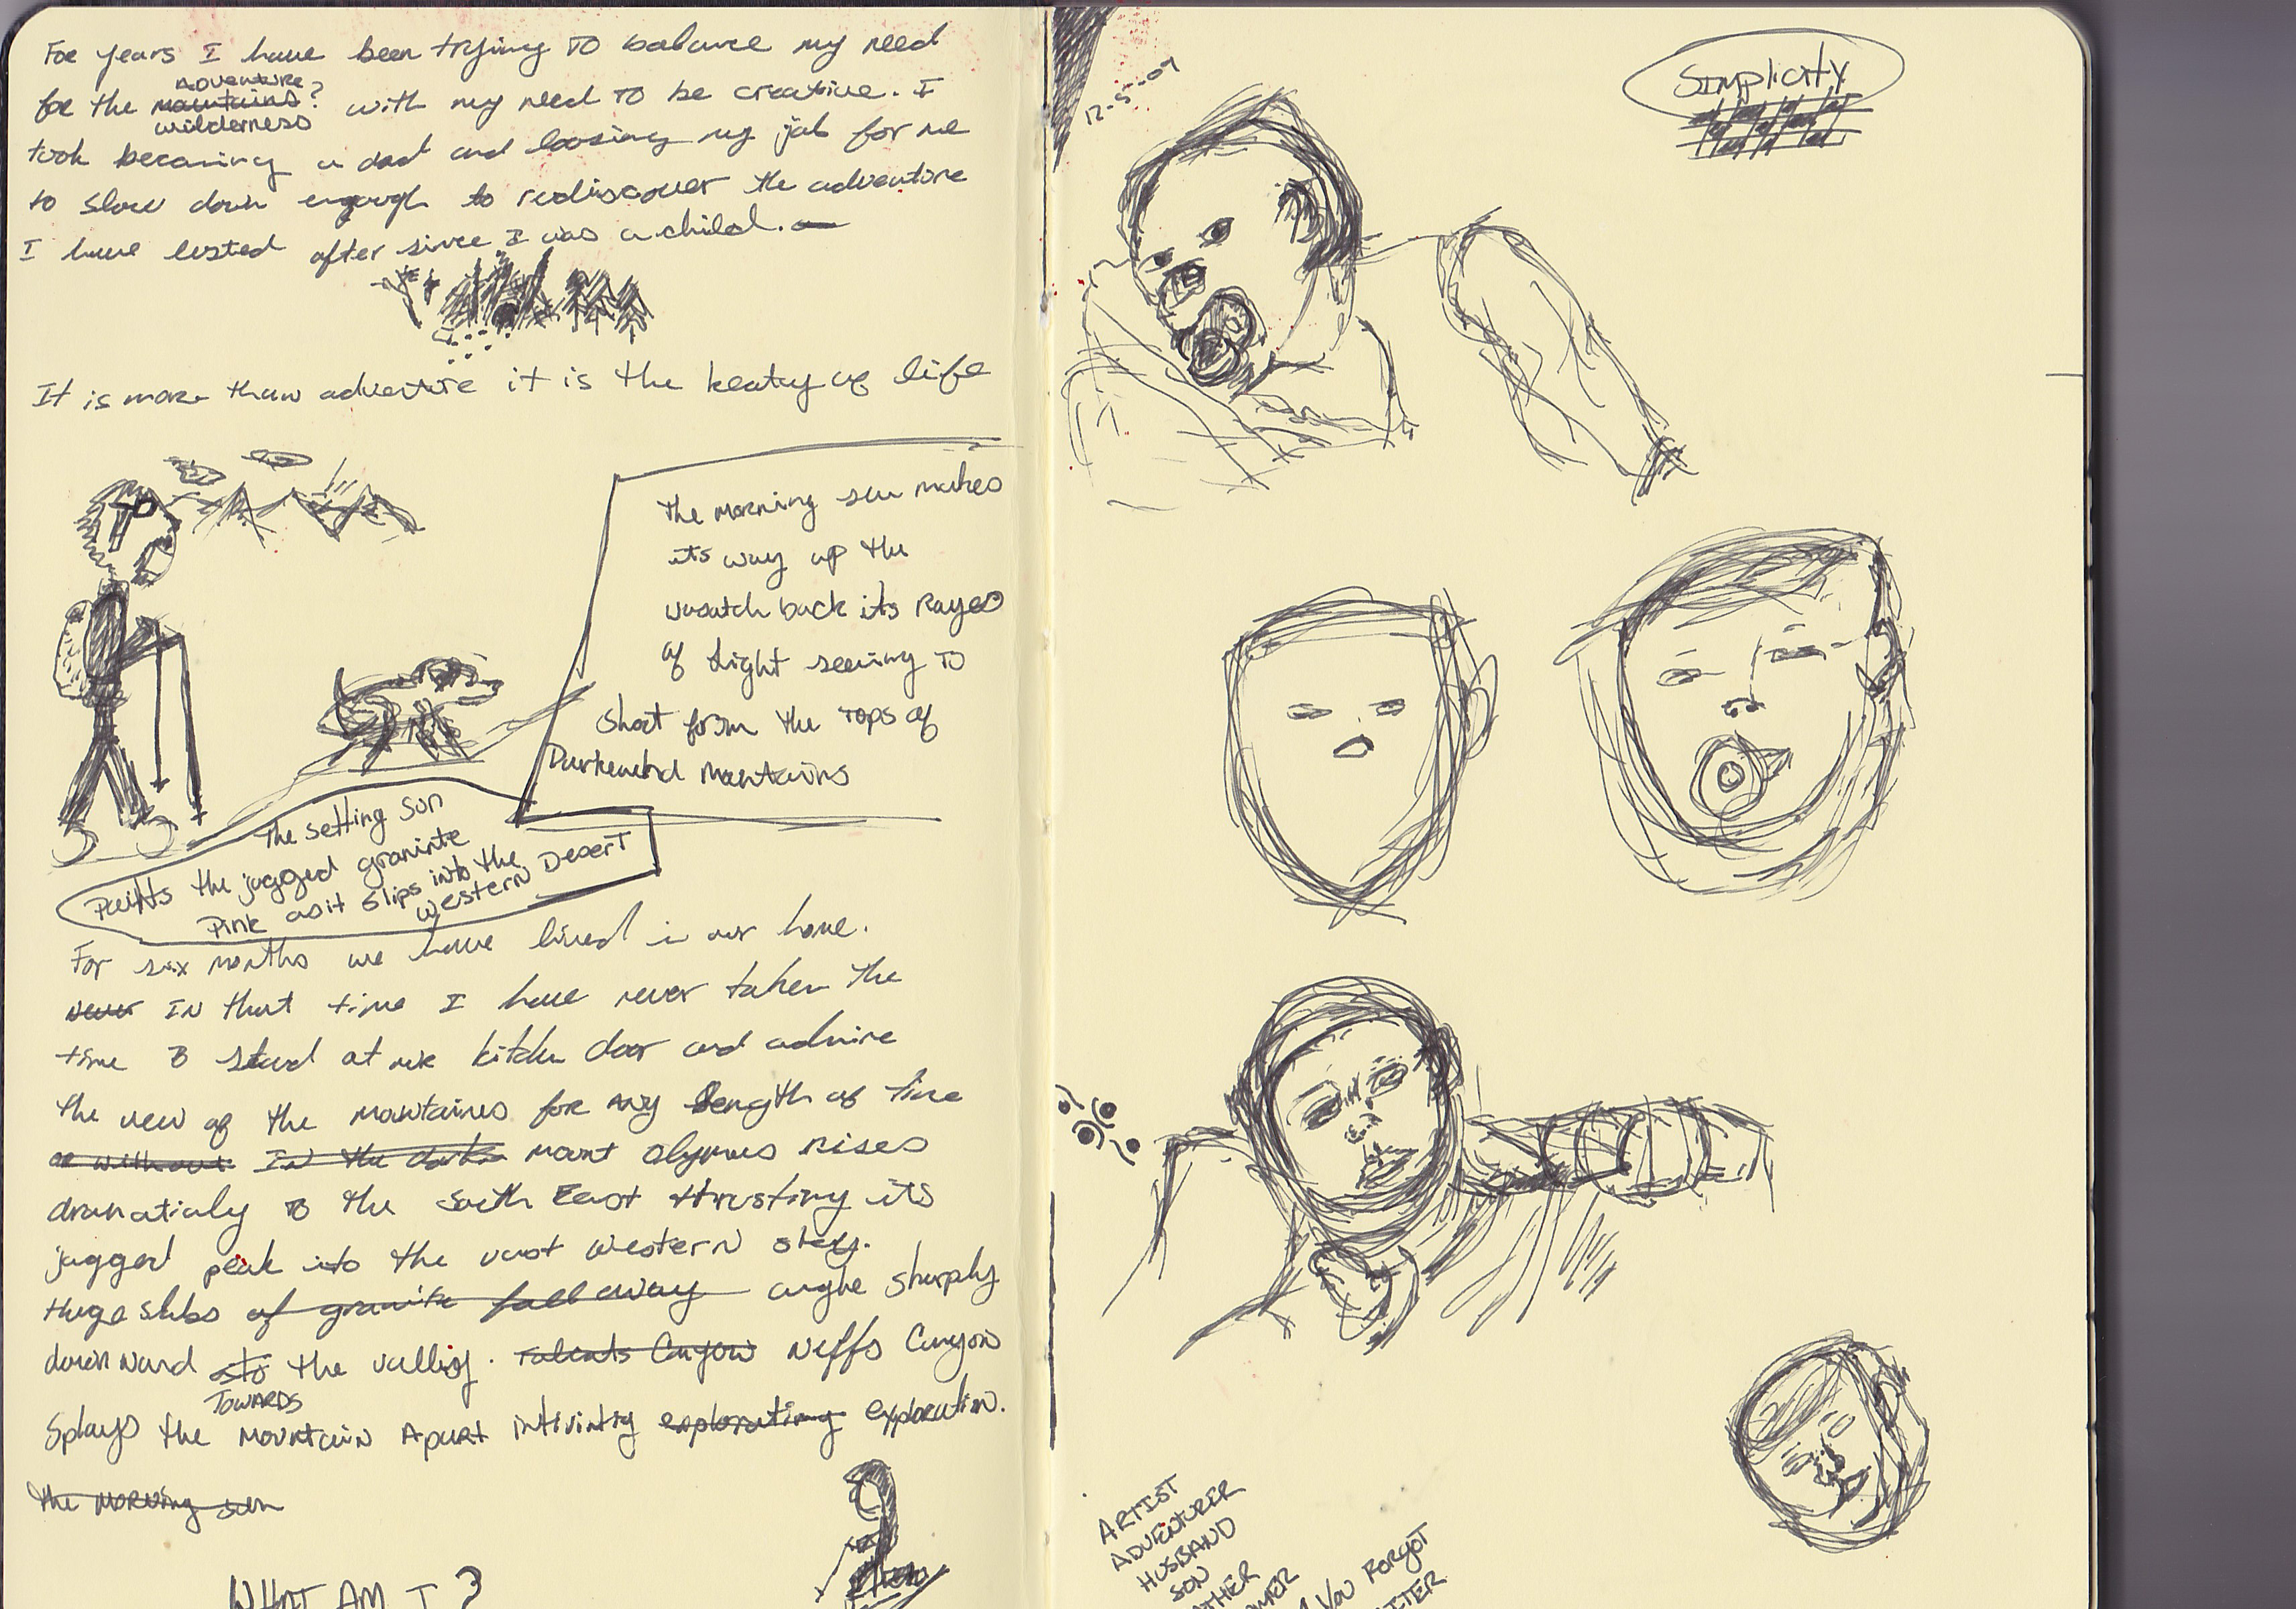 For years I have been trying TO balance my need
Adventure
for the mountains? with my need TO be creative. I
wilderness
took becoming a dad and loosing my job for me
to slow down enough to rediscover the adventure
I have lusted after since I was a child.
It is more than adventure it is the beatuy of life
the morning sun makes
its way up the
wasatch back its Rayes
of Light seeming TO
shoot from the TOPS of
Darkend Mountains
The setting Sun
Paints the jagged graninte
Pink as it slips into the
western Desert
For six months we have lived in our home.
never IN that time I have never taken the
time to stand at our kitchen door and admire
the veiw of the mountains for any length of time
or without IN the dark mount olymus rises
dramaticaly to the South East thrusting its
jagged peak into the vast western sky.
Huge slabs of granite fall away angle sharply
downward to the valley. Neffs Canyon
TOWARDS
Splays the Mountain Apart intiviting explorating exploration.
the Morning sun
WHAT AM I?
12-5-09
Simplicity
ARTIST
ADVENTURER
HUSBAND
SON
YOU FORGOT